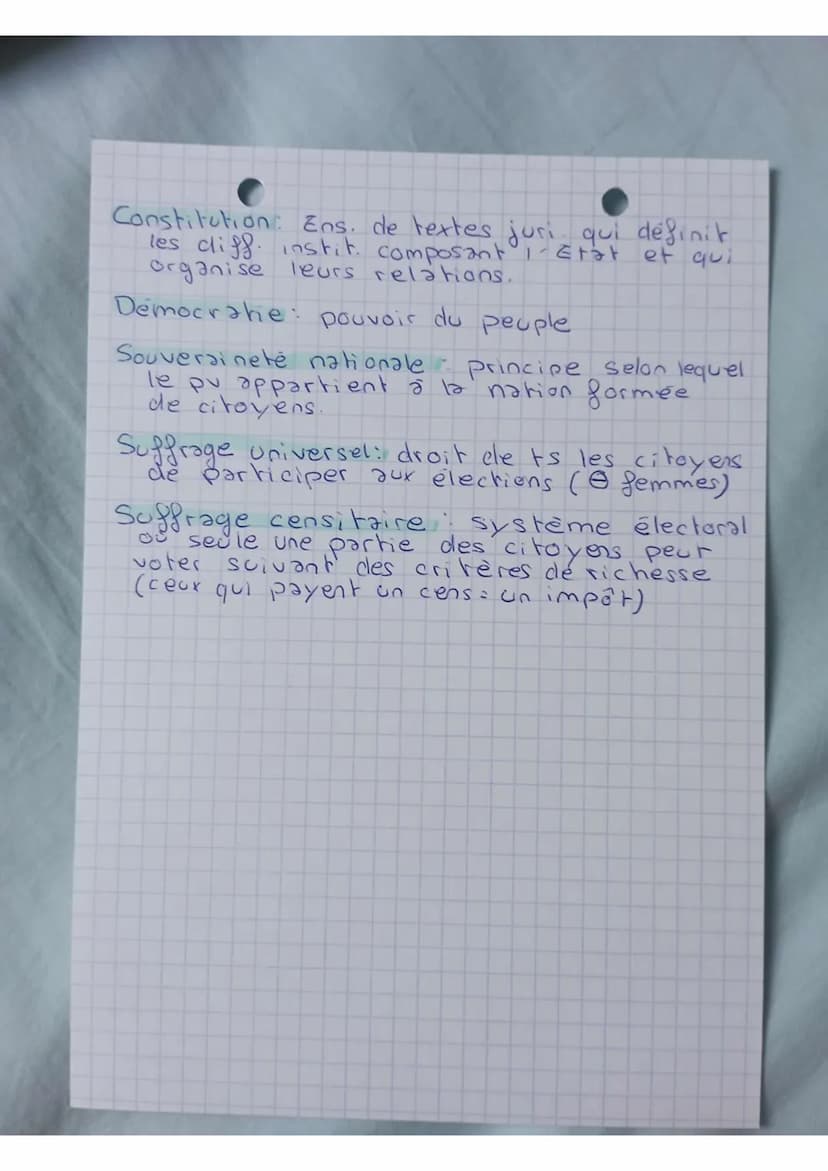 Constitution : Ens. de textes juri. qui définit
les diff. instit. composant l'État et qui
organise leurs relations.
Démocratie : pouvoir du peuple
Souveraineté nationale : principe selon lequel
le pv appartient à la nation formée
de citoyens.
Suffrage universel : droit de ts les citoyens
de participer aux élections (⊖ femmes)
Suffrage censitaire : système électoral
où seule une partie des citoyens peut
voter suivant des critères de richesse
(ceux qui payent un cens = un impôt)